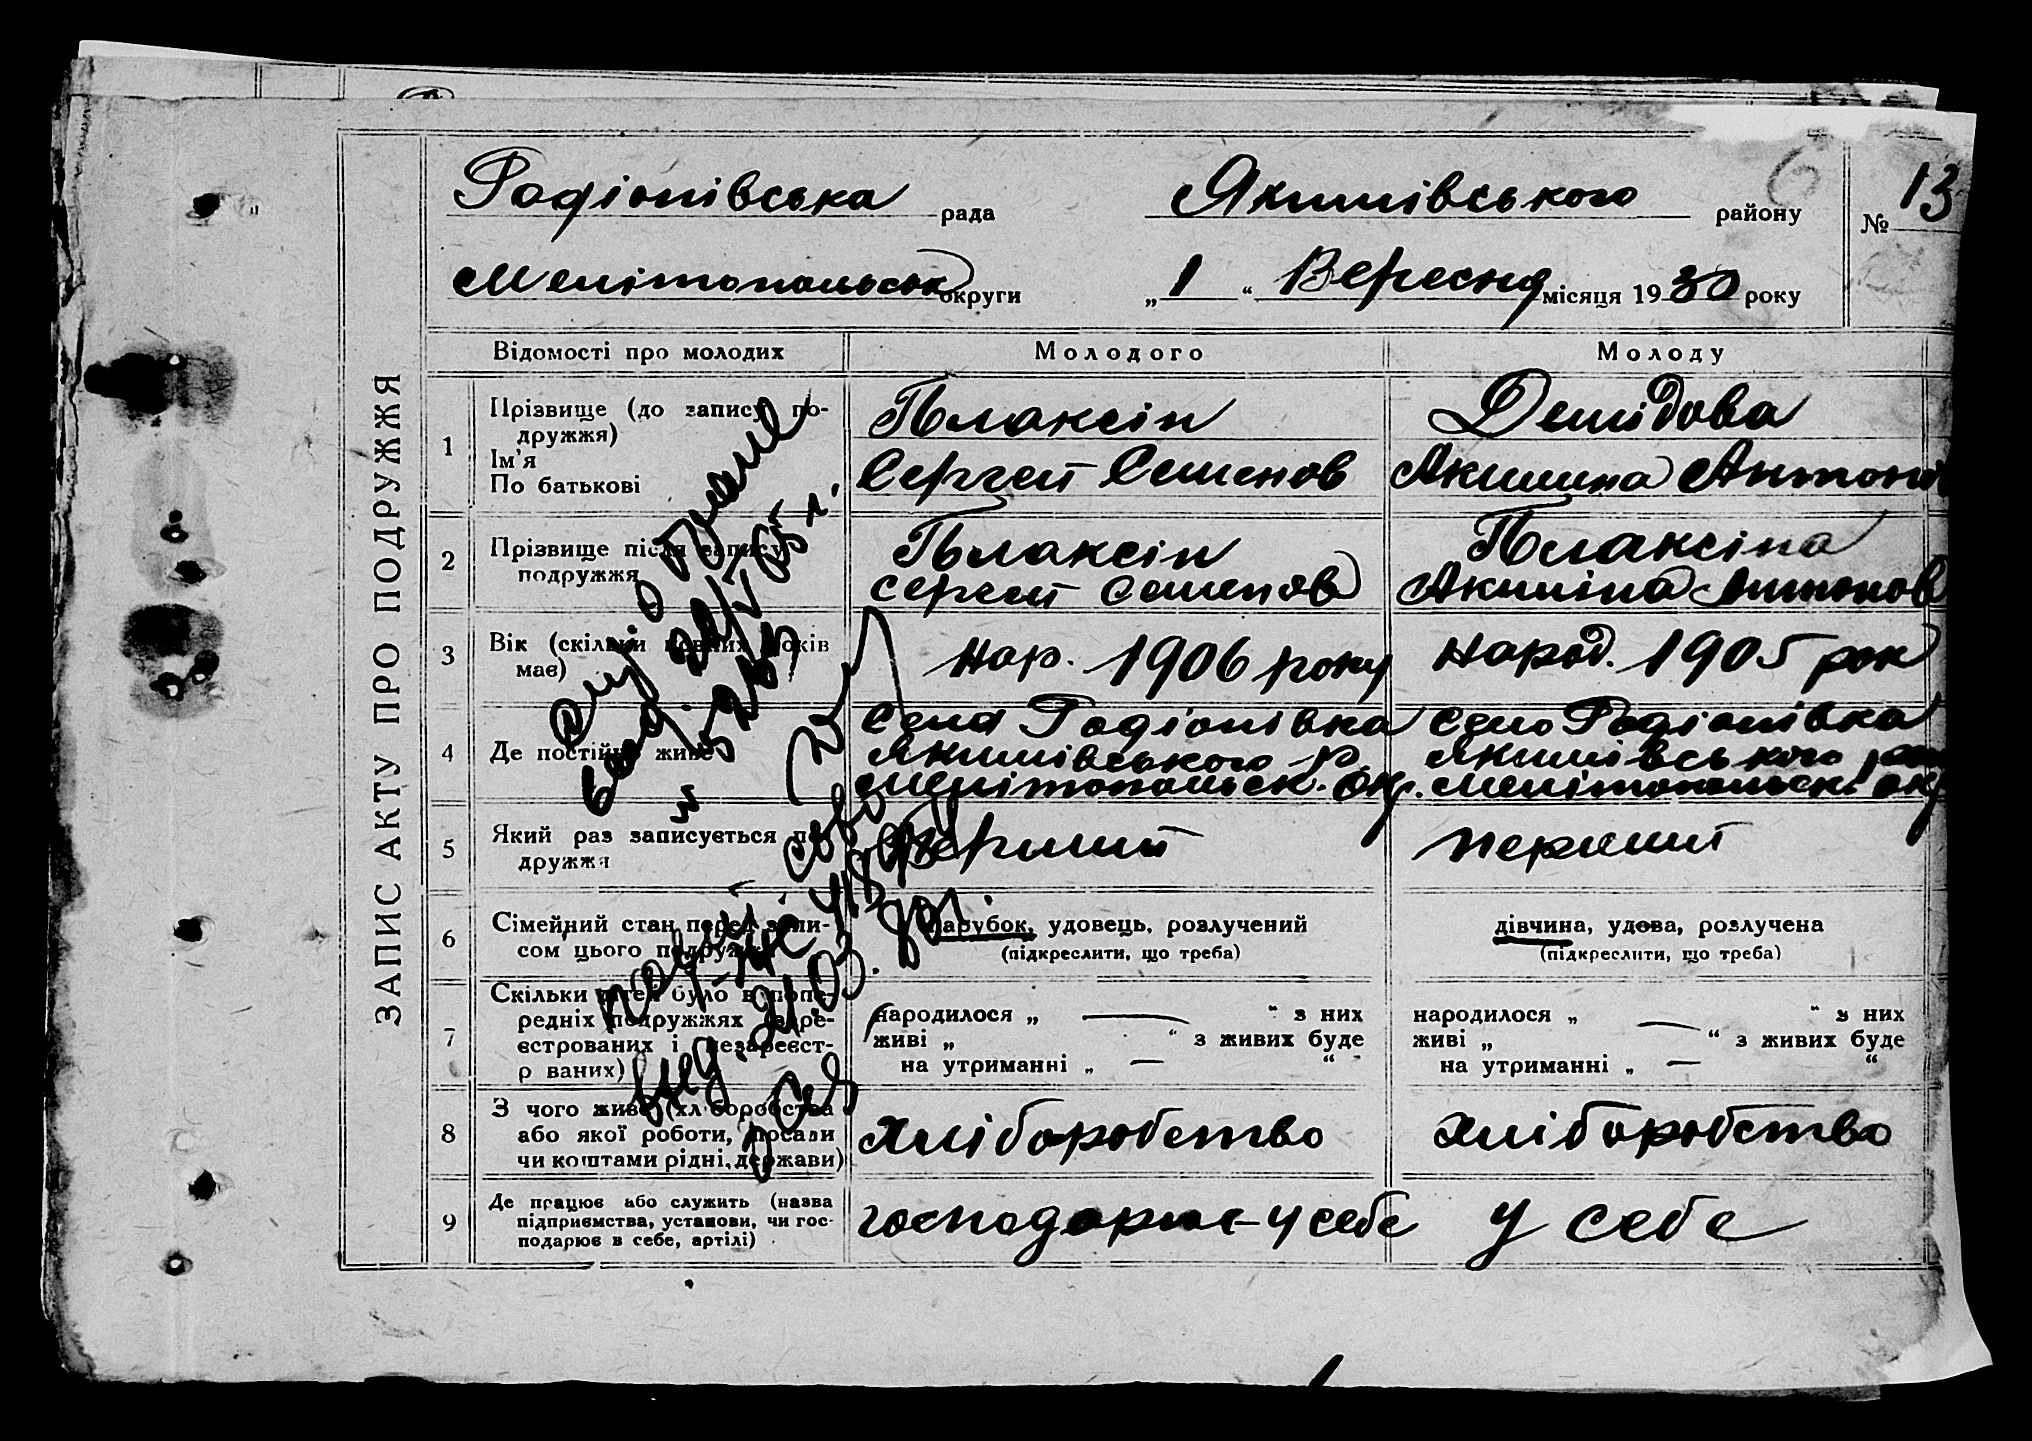 Родіонівська рада Якимівського району № 13
Мелітопольськ округи „ 1 “ Вересня місяця 1930 року
ЗАПИС АКТУ ПРО ПОДРУЖЖЯ
Відомості про молодих Молодого Молоду
1 Прізвище (до запису по-
дружжя)
Ім'я
По батькові
Плаксін
Сергей Семенов
Демідова
Акимина Антонів
2 Прізвище після запису
подружжя
Плаксін
Сергей Семенов
Плаксіна
Акиміна Антонов
3 Вік (скільки повних років
має)
Нар. 1906 року
Народ. 1905 рок
4 Де постійно живе
Село Родіонівка
Якимівського р.
Мелітопольск. окр.
Село Родіонівка
Якимівського рай
Мелітопольск. окр
5 Який раз записується по-
дружжя
перший
перший
6 Сімейний стан перед запи-
сом цього подружжя
парубок, удовець, розлучений
(підкреслити, що треба)
дівчина, удова, розлучена
(підкреслити, що треба)
7 Скільки дітей було в попе-
редніх подружжях зареє-
естрованих і незареєст-
рованих)
народилося „ — “ з них
живі „ “ з живих буде
на утриманні „ — “
народилося „ — “ з них
живі „ “ з живих буде
на утриманні „ — “
8 З чого живе (хліборобства
або якої роботи, посади
чи коштами рідні, держави)
хліборобство
хліборобство
9 Де працює або служить (назва
підприємства, установи, чи гос-
подарює в себе, артілі)
господарює у себе
у себе